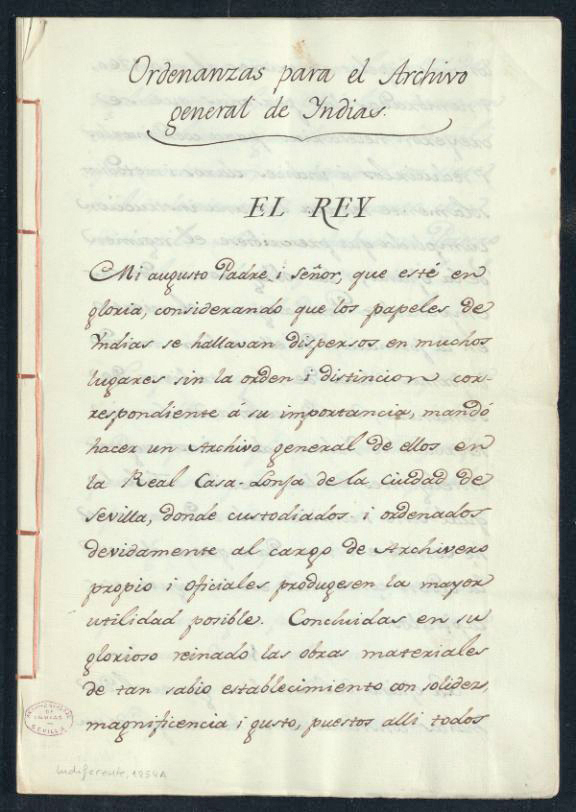 Ordenanzas para el Archivo
general de Yndias.
EL REY
Mi augusto Padre i señor, que esté en
gloria, considerando que los papeles de
Yndias se hallavan dispersos en muchos
lugares sin la orden i distincion cor-
respondiente á su importancia, mandó
hacer un Archivo general de ellos en
la Real Casa-Lonja de la ciudad de
Sevilla, donde custodiados i ordenados
devidamente al cargo de Archivero
propio i oficiales produgesen la mayor
utilidad posible. Concluidas en su
glorioso reinado las obras materiales
de tan sabio establecimiento con solidez,
magnificencia i gusto, puestos alli todos
DE
INDIAS
SEVILLA
Indiferente, 1854A